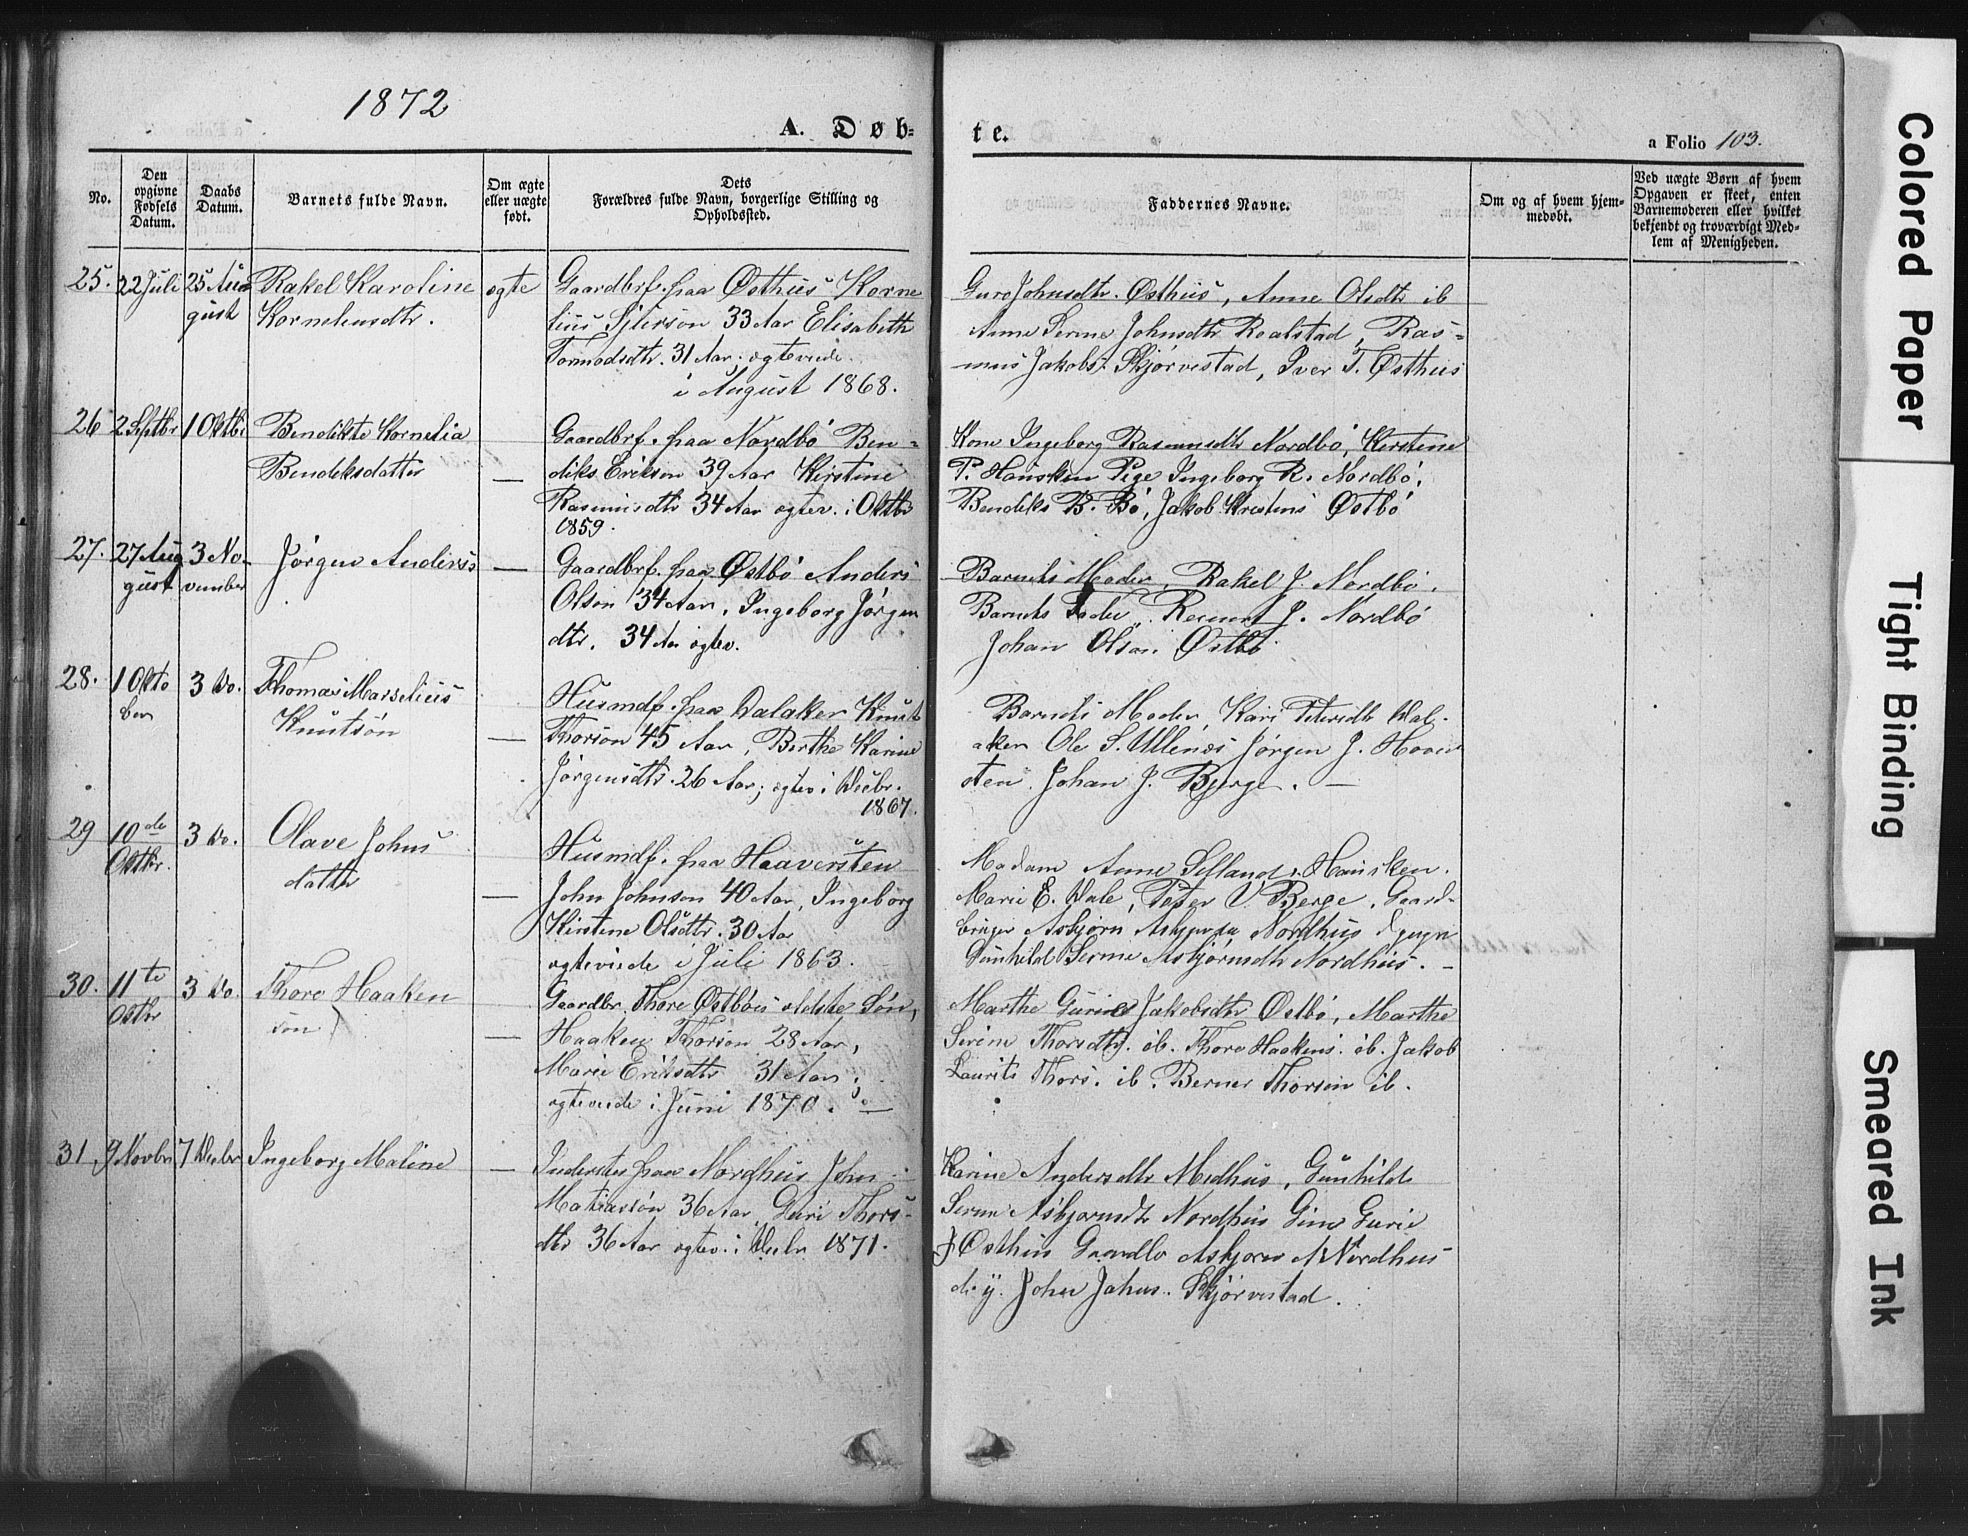 1872
A. Døb=
te.
a Folio 103.
No.
Den opgivne Fødsels Datum.
Daabs Datum.
Barnets fulde Navn.
Om ægte eller uægte født.
Dets Forældres fulde Navn, borgerlige Stilling og Opholdssted.
Faddernes Navne.
Om og af hvem hjem= medøbt.
Ved uægte Børn af hvem Opgaven er skeet, enten Barnemoderen eller hvilket bekjendt og troværdigt Med= lem af Menigheden.
25. 22 Juli 25 Au
gust
Rakel Karoline
Korneliusdtr.
ægte
Gaardbrf. paa Østhus Korne
lius 33 Aar Elisabeth
Tormodsdtr. 31 Aar. ægteviede
i August 1868.
Guro Johnsdtr. Østhus, Anne Olsdtr ib
Anne Serine Johnsdtr Roalstad, Ras=
mus Jakobs. Skjørvestad, Iver T. Østhus
26 2 Septbr 1 Oktbr
Bendikte Kornelia
Bendiksdatter
—
Gaardbrf. paa Nordbö Ben=
diks Erikson 39 Aar Kirstine
Rasmusdtr 34 Aar ægtev. i Oktbr
1859.
Kone Ingeborg Rasmusdtr Nordbö, Kirstine
P. Hausken Pige Ingeborg R. Nordbö,
Bendiks B. Bö, Jakob Krestens Østbö
27. 27 Aug
gust
3 No-
vember
Jörgen Anders
—
Gaardbrf. paa Østbö Anders
Olson 34 Aar, Ingeborg Jørgen
dtr. 34 Aar ægtev.
Barnets Moder, Rakel J. Nordbö.
Barnets Fader, J. Nordbö
Johan Olson Østbö
28. 1 Okto
ber
3 Do.
Thomas Marselius
Knutsön
—
Husmdf. paa Dalaker Knut
Thorson 45 Aar, Berthe Karine
Jörgensdtr. 26 Aar, ægtev i Decbr.
1867.
Barnets Moder, Kari Petersdtr Dal-
aker Ole S. Ullenes Jørgen J. Haaver
sten. Johan J. Berge. —
29 10de
Oktbr.
3 Do.
Olave Johns
datter
—
Husmdf. paa Haaversten
John Johnson 40 Aar, Ingeborg
Kirstine Olsdtr. 30 Aar
ægteviede i Juli 1863.
Madam Anne Selland, Hausken.
Marie E. Dale, Peter V Berge, Gaard-
bruger Asbjørn Nordhus
Gunhild Serine Asbjørnsdtr Nordhus. -
30. 11te
Oktbr
3 Do.
Thore Haaken
son
—
Gaardbr. Thore Østböes ældste Søn,
Haaken Thorson 28 Aar,
Marie Eriksdtr 31 Aar;
ægteviede i Juni 1870. —
Marthe Gurine Jakobsdtr Østbö, Marthe
Serine Thorsdtr. ib. Thore Haakens. ib. Jakob
Laurits Thors. ib. Berner Thorson ib.
31 9 Novbr 7 Decbr
Ingeborg Maline
—
Inderster paa Nordhus John
Matiasson 36 Aar, Guri Thors-
dtr 36 Aar ægtev. i Decbr 1871.
Karine Andersdtr Medhus, Gunhild
Serine Asbjørnsdtr Nordhus Gurie
Østhus Gaardbr Asbjørn A Nordhus
John Johns. Skjørvestad.
Colored Paper
Tight Binding
Smeared Ink